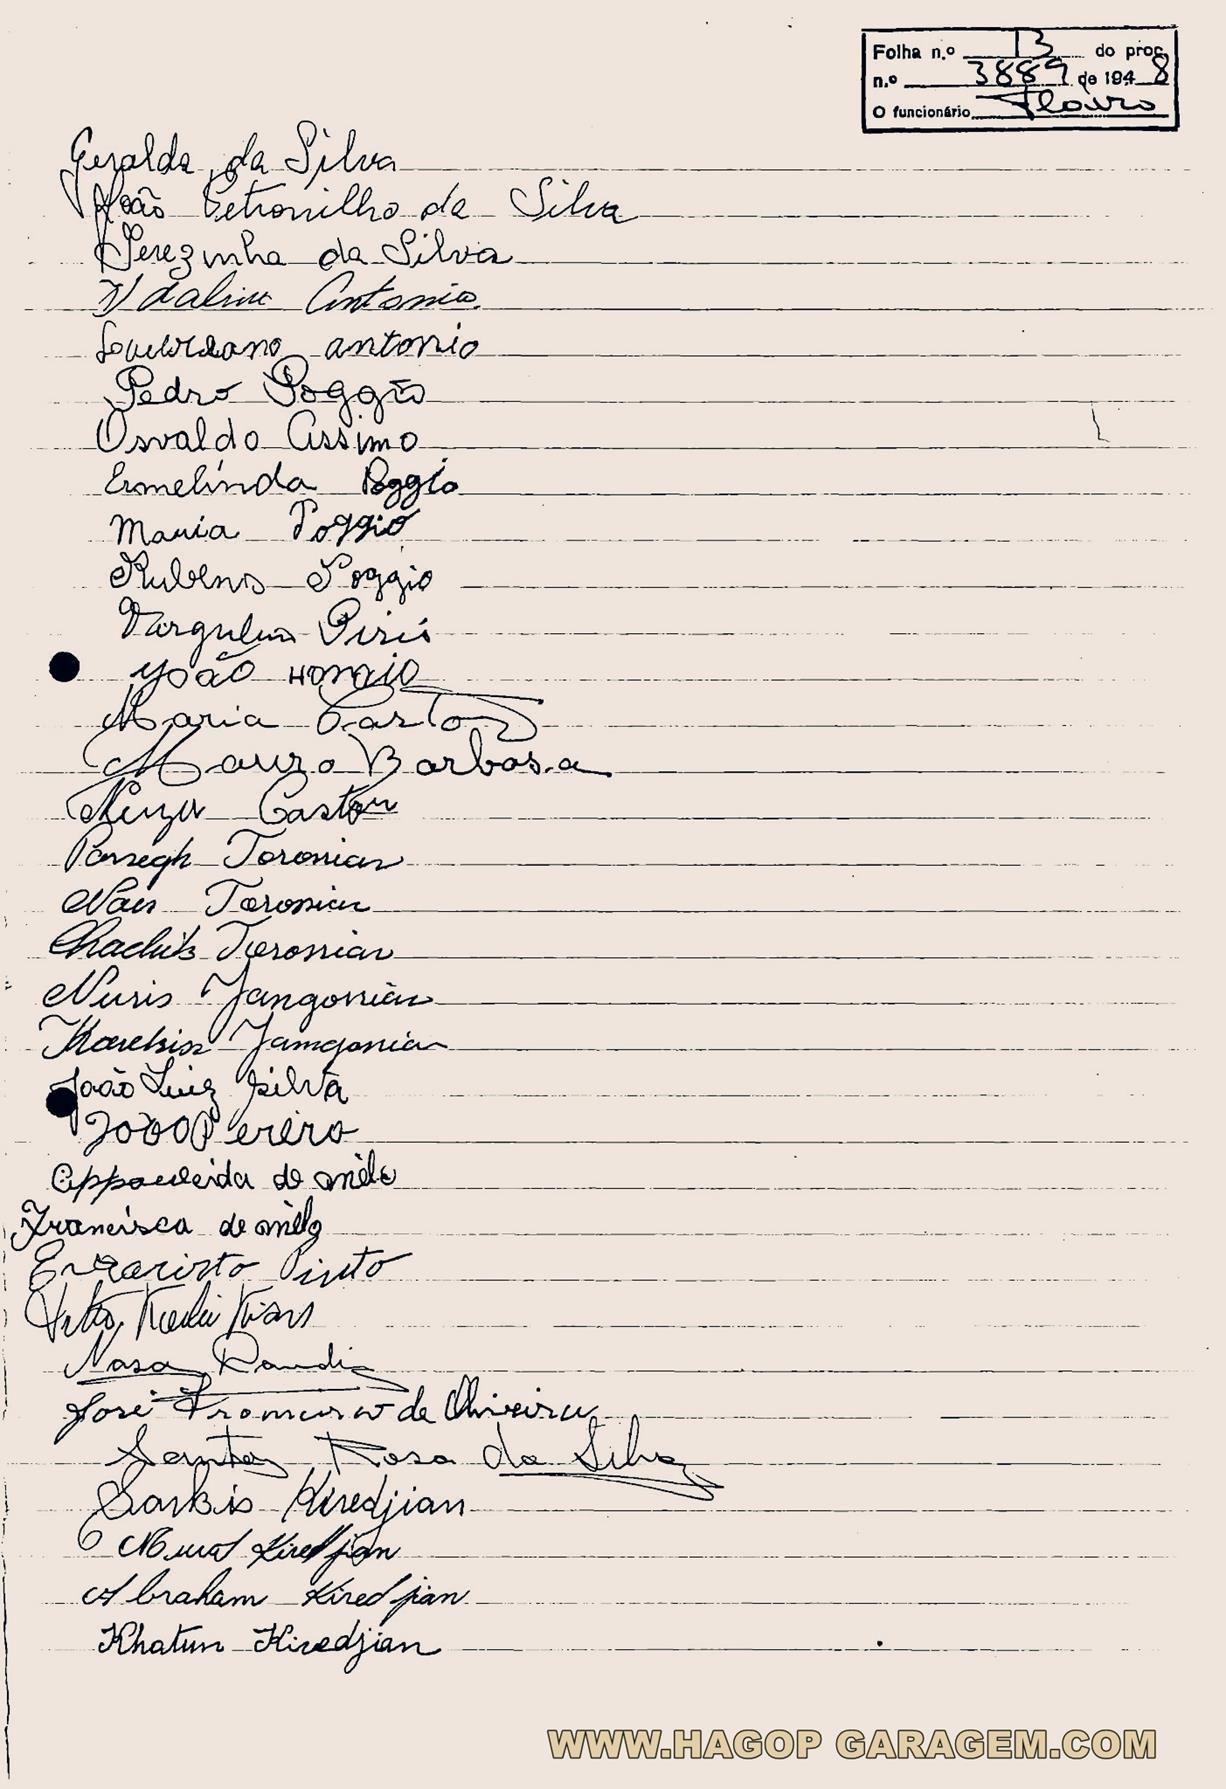 Folha n.º 13 do proc.
n.º 3889 de 1948
O funcionário
Geralda da Silva
João Petronilho da Silva
Terezinha da Silva
Idalina Antonia
antonio
Pedro Poggio
Osvaldo Cissimo
Ermelinda Poggio
Maria Poggio
Rubens Poggio
João
Maria Caston
Mauro Barbosa
Neuza Caston
Parsegh Toronian
Toronian
Chachik Toronian
Nuris Jamgonian
Jamgonian
João Luiz Silva
João Pereira
de melo
Francisca de melo
Evaristo Pinto
José Francisco de Oliveira
Santos Rosa da Silva
Sarkis Kiredjian
Murat Kiredjian
Abraham Kiredjian
Khatun Kiredjian
WWW.HAGOP GARAGEM.COM